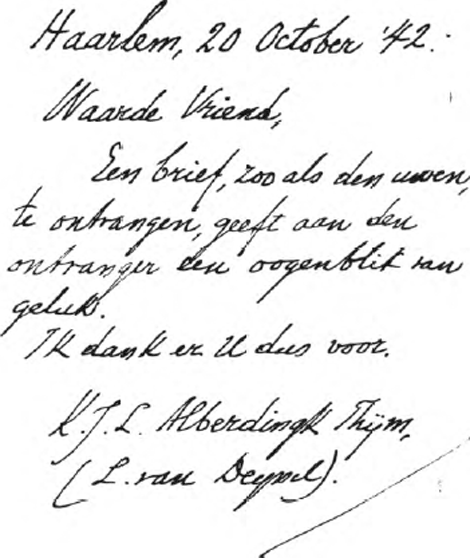 Haarlem, 20 October '42.
Waarde Vriend,
Een brief, zoo als den uwen,
te ontvangen, geeft aan den
ontvanger een oogenblik van
geluk.
Ik dank er U dus voor.
K.J.L. Alberdingk Thijm,
(L. van Deyssel).